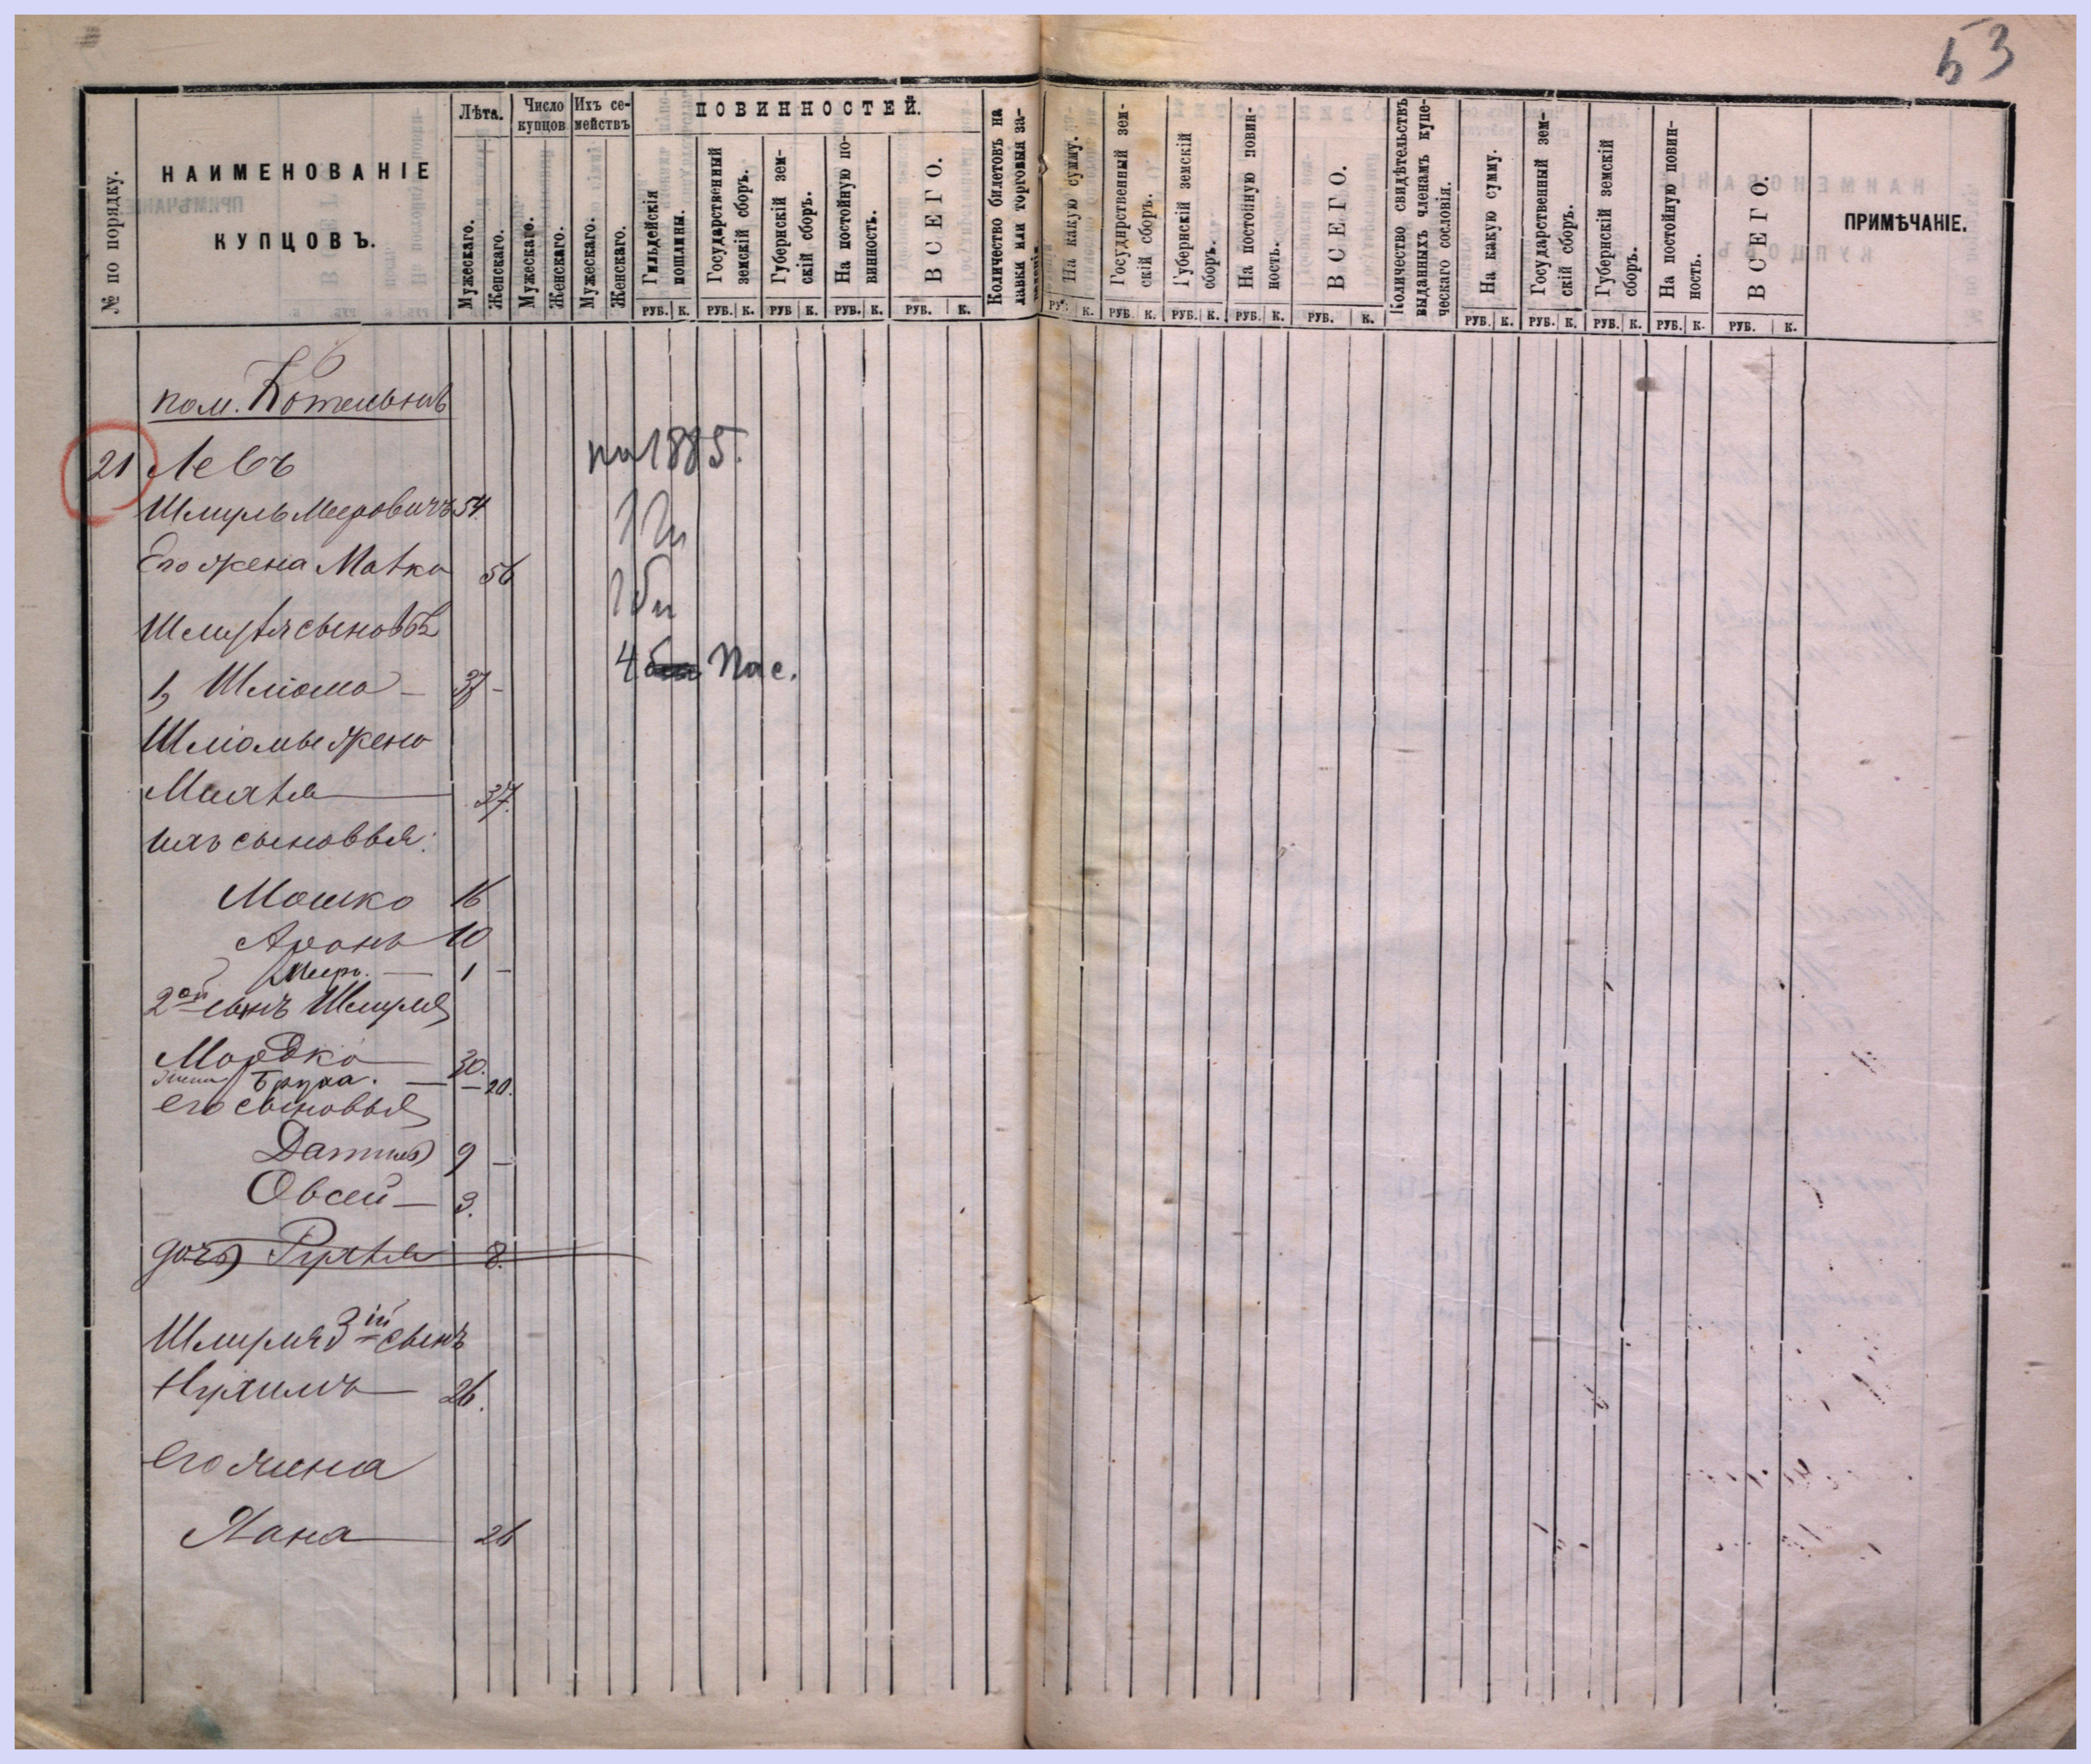 53
№ по порядку.
НАИМЕНОВАНІЕ
КУПЦОВЪ.
Лѣта.
Мужескаго.
Женскаго.
Число
купцов
Мужескаго.
Женскаго.
Ихъ се-
мействъ
Мужескаго.
Женскаго.
ПОВИННОСТЕЙ.
Гильдейскія
пошлины.
Государственный
земскій сборъ.
Губернскій зем-
скій сборъ.
На постойную по-
винность.
ВСЕГО.
Количество билетовъ на
лавки или торговыя за-
На какую сумму.
Государственный зем-
скій сборъ.
Губернскій земскій
сборъ.
На постойную повин-
ность.
ВСЕГО.
Количество свидѣтельствъ
выданныхъ членамъ купе-
ческаго сословія.
На какую сумму.
Государственный зем-
скій сборъ.
Губернскій земскій
сборъ.
На постойную повин-
ность.
ВСЕГО.
ПРИМѢЧАНІЕ.
РУБ. К. РУБ. К. РУБ К. РУБ. К. РУБ. К.
РУБ. К. РУБ. К. РУБ. К. РУБ. К. РУБ. К.
РУБ. К. РУБ. К. РУБ. К. РУБ. К. РУБ. К.
пом.
21 Левъ
на 1885.
Шмуль Меровичъ 54.
Его жена 56
сыновья
4 Пас.
1, Шліома - 37 -
Шліомы жена
37.
ихъ сыновья:
Мошко 16
Аронъ 10
Меръ. — 1 —
2ой сынъ Шмуля
Мордко 30.
жена Бруха. — 20.
его сыновья
9 —
Овсей — 3.
дочь Рухля 8.
Шмуля 3ій сынъ
Нухимъ 26.
его жена
Хана 26